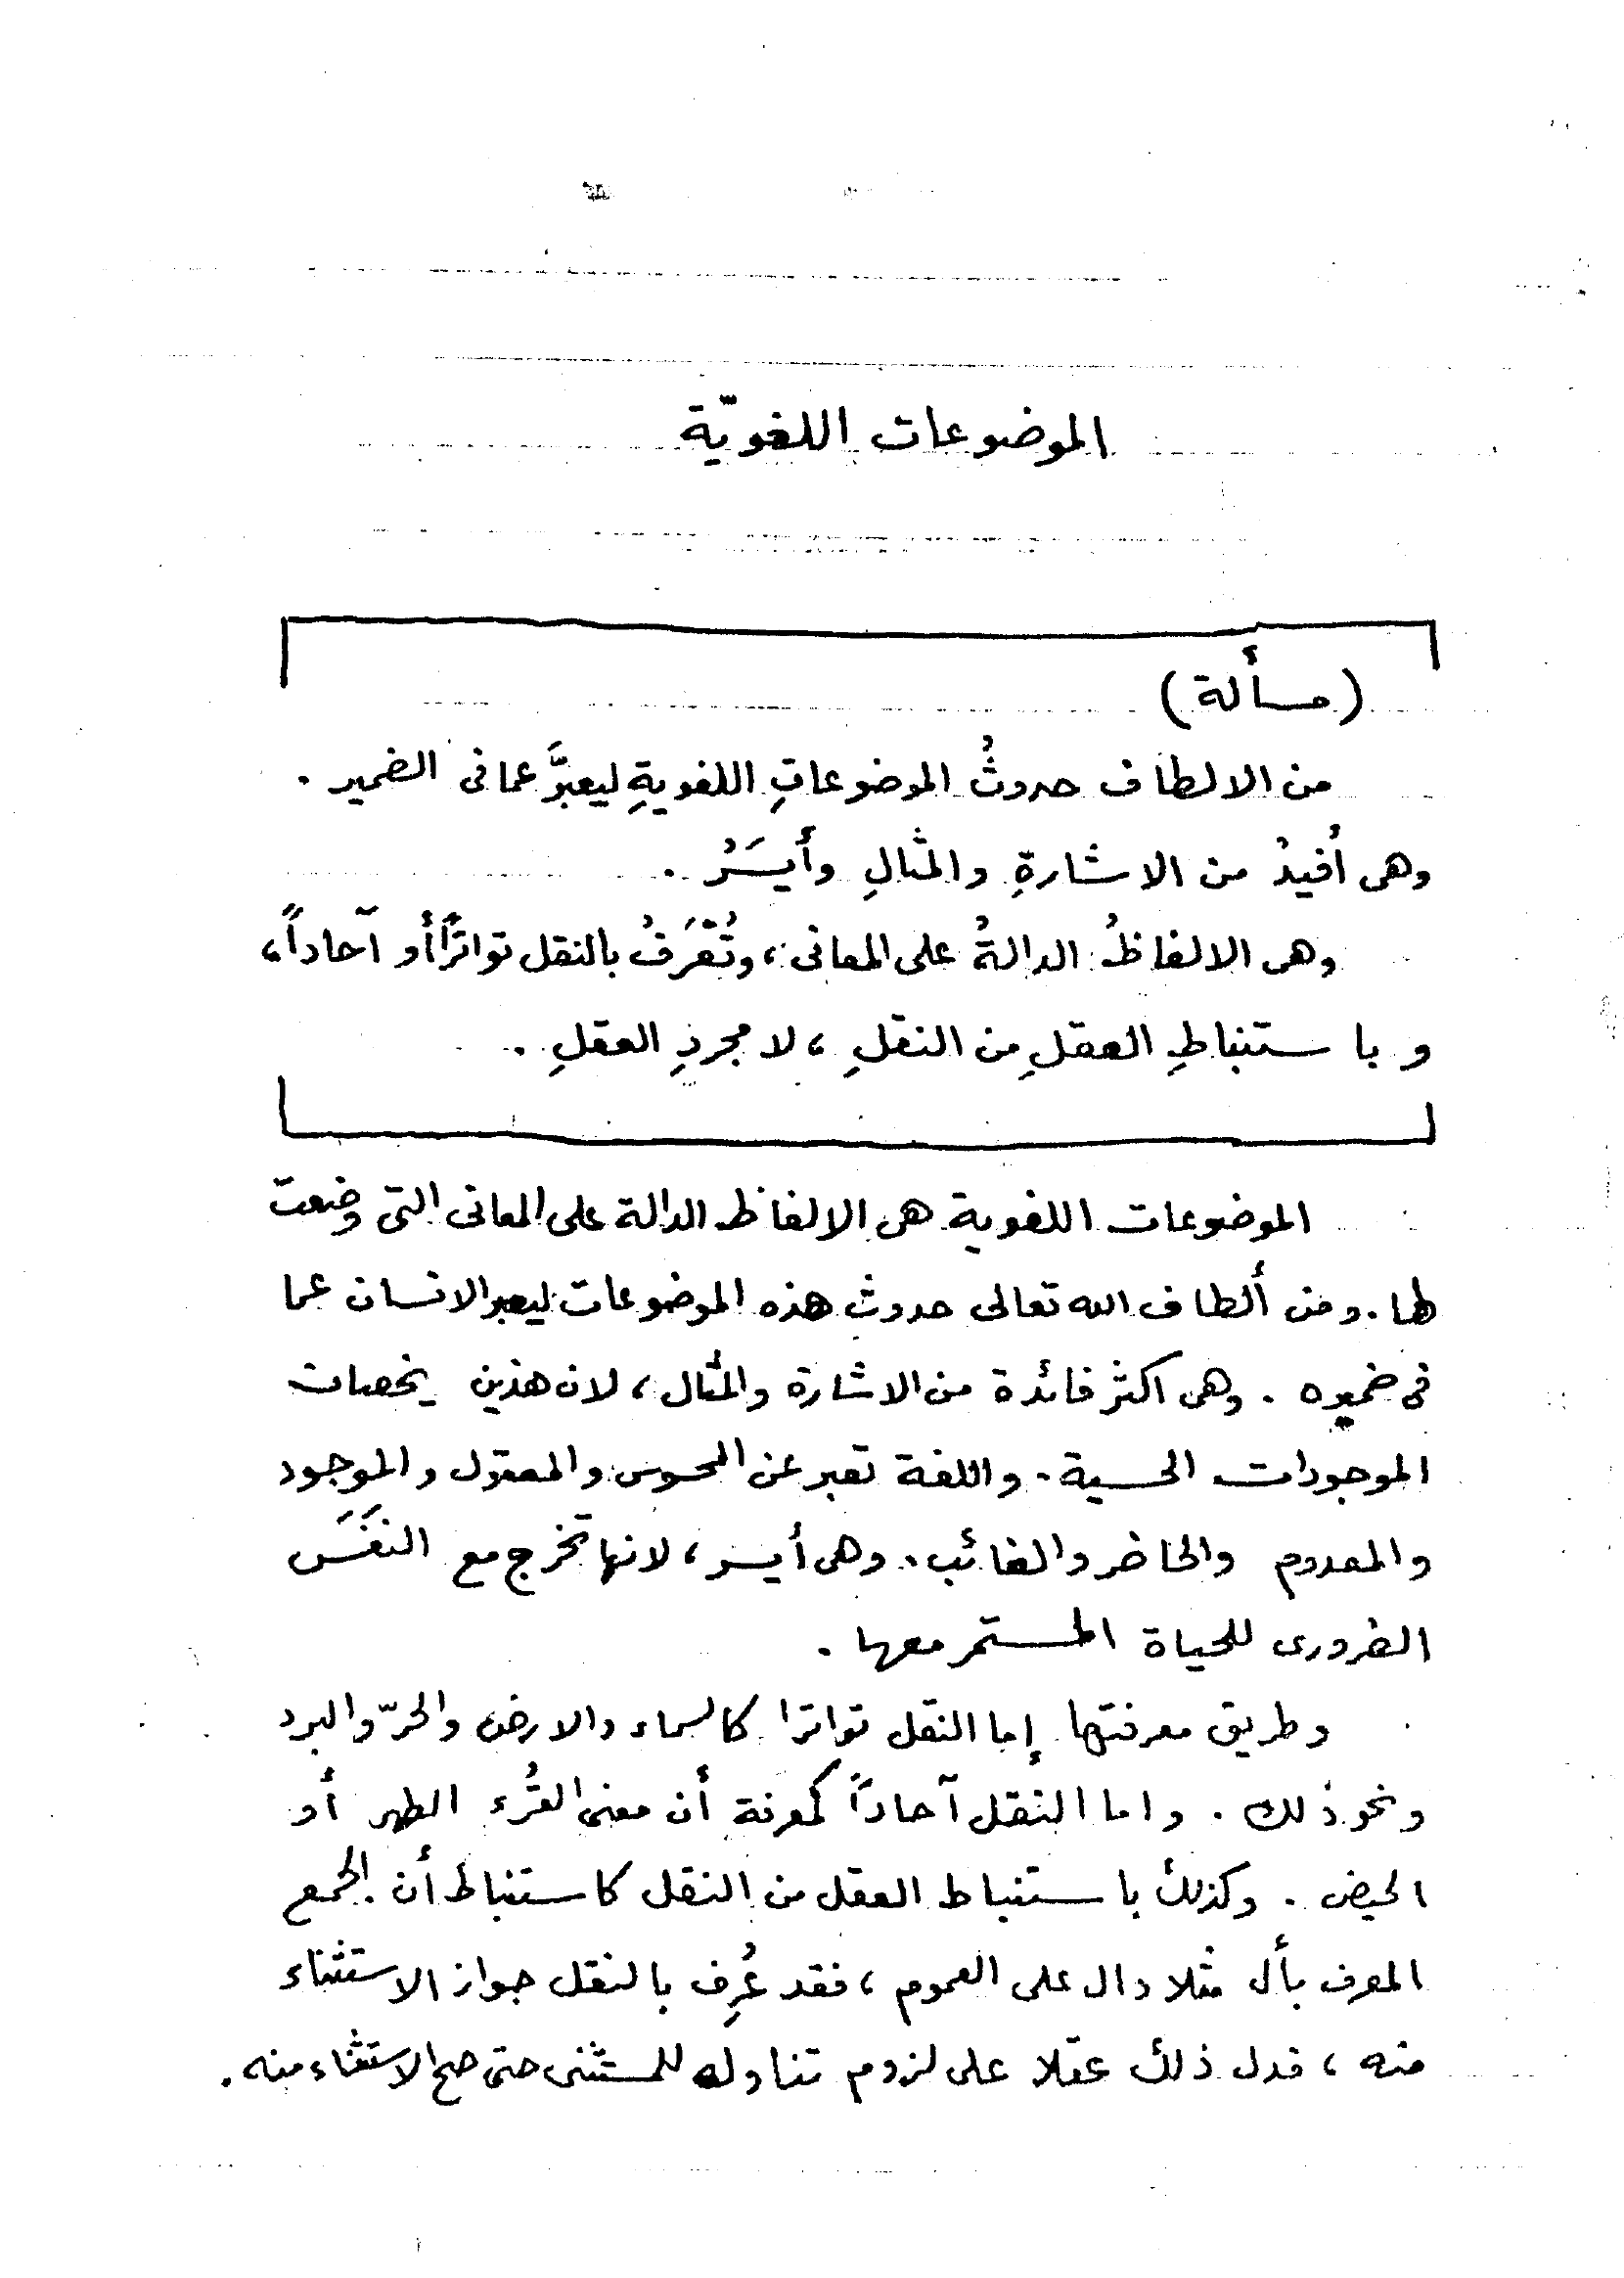 الموضوعات اللغويّة
(مسألة)
من الالطاف حدوثُ الموضوعاتِ اللغويةِ ليعبَّرَ عما فى الضمير .
وهى أفيدُ من الاشارةِ والمثالِ وأيسَرُ .
وهى الالفاظُ الدالةُ على المعانى ، وتُعْرَفُ بالنقل تواتراً أو آحاداً ،
و باستنباطِ العقلِ من النقلِ ، لا مجردِ العقلِ .
الموضوعات اللغوية هى الالفاظ الدالة على المعانى التى وضعت
لها . ومن ألطاف الله تعالى حدوث هذه الموضوعات ليعبر الانسان عما
فى ضميره . وهى اكثر فائدة من الاشارة والمثال ، لان هذين يخصان
الموجودات الحسية . واللغة تعبر عن المحسوس والمعقول والموجود
والمعدوم والحاضر والغائب . وهى أيسر ، لانها تخرج مع النَفَس
الضرورى للحياة المستمر معها .
وطريق معرفتها إما النقل تواترا كالسماء والارض والحرّ والبرد
ونحو ذلك . واما النقل آحاداً كمعرفة أن معنى القُرء الطهر أو
الحيض . وكذلك باستنباط العقل من النقل كاستنباط أن الجمع
المعرف بأل مثلا دال على العموم ، فقد عُرِف بالنقل جواز الاستثناء
منه ، فدل ذلك عقلا على لزوم تناوله للمستثنى حتى صح الاستثناء منه .